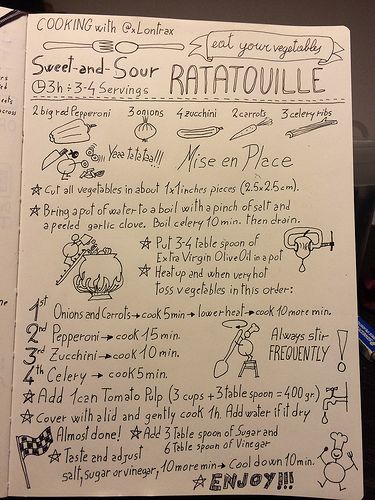 COOKING with @xLontrax
eat your vegetables
Sweet-and-Sour RATATOUILLE
3h : 3-4 Servings
2 big red Pepperoni 3 onions 4 zucchini 2 carrots 3 celery ribs
Yeee tatataa!!! Mise en Place
Cut all vegetables in about 1x1 inches pieces (2.5x2.5cm).
Bring a pot of water to a boil with a pinch of salt and
a peeled garlic clove. Boil celery 10 min. then drain.
Put 3-4 table spoon of
Extra Virgin Olive Oil in a pot
Heat up and when very hot
toss vegetables in this order:
1st Onions and Carrots → cook 5 min → lower heat → cook 10 more min.
2nd Pepperoni → cook 15 min.
3rd Zucchini → cook 10 min.
4th Celery → cook 5 min.
Always stir
FREQUENTLY !
Add 1 can Tomato Pulp (3 cups + 3 table spoon = 400 gr.)
Cover with a lid and gently cook 1h. Add water if it dry
Almost done! Add 3 Table spoon of Sugar and
6 Table spoon of Vinegar
Taste and adjust
salt, sugar or vinegar, 10 more min → Cool down 10 min.
ENJOY!!!